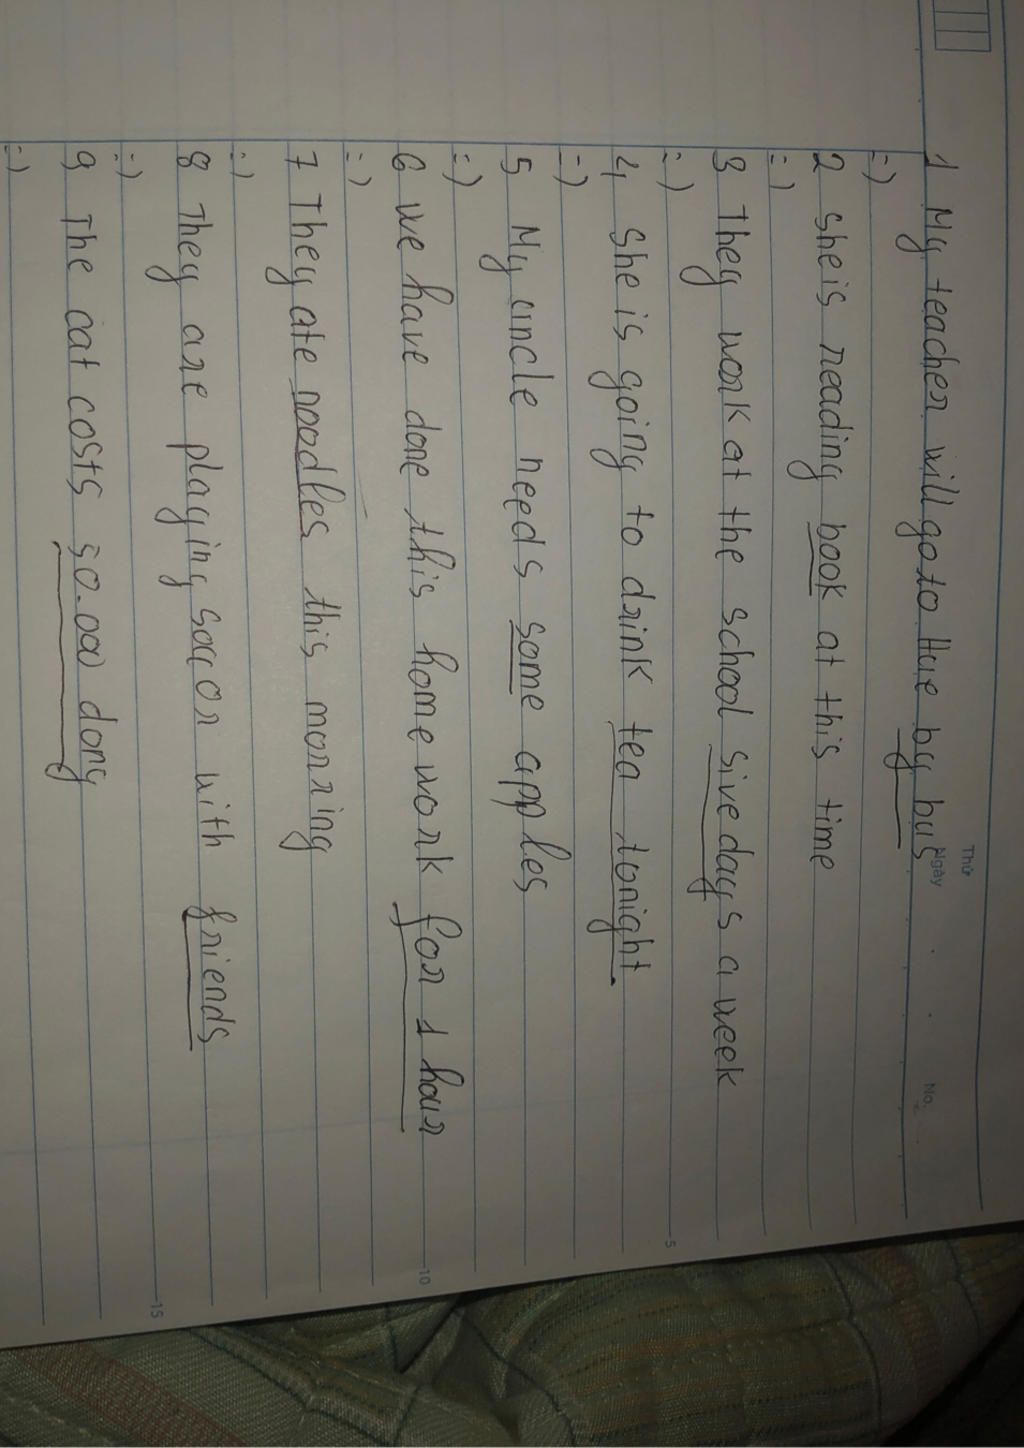 Thứ
Ngày . . No.
1 My teacher will go to Hue by bus
=)
2 she is reading book at this time
=)
3 They work at the school sive days a week
=)
4 she is going to drink tea tonight.
=)
5 My uncle needs some apples
=)
6 we have done this home work for 1 hour
=)
7 They ate noodles this morning
=)
8 They are playing soccor with friends
=)
9 The cat costs 50.000 dong
=)
5
10
15